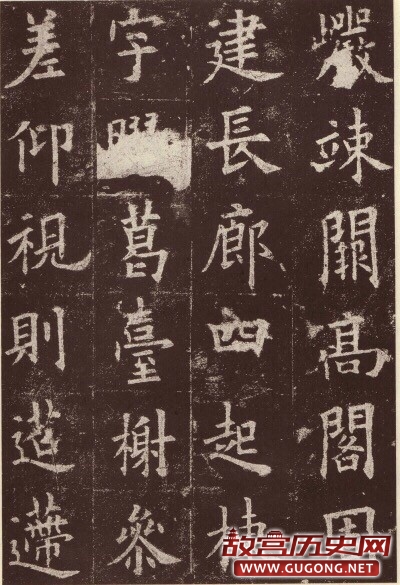 巖竦闕高閣周
建長廊四起棟
宇葛臺榭參
差仰視則迢遰
故宫历史网
WWW.GUGONG.NET